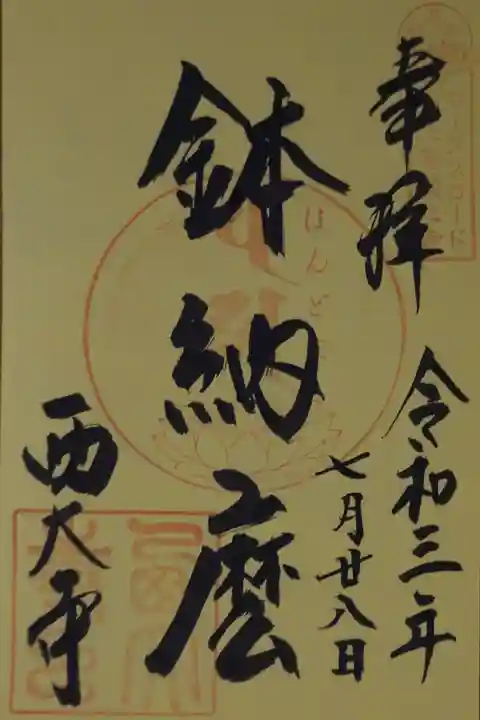 奉拝
令和三年
七月廿八日
鉢納麿
はんど
西大寺